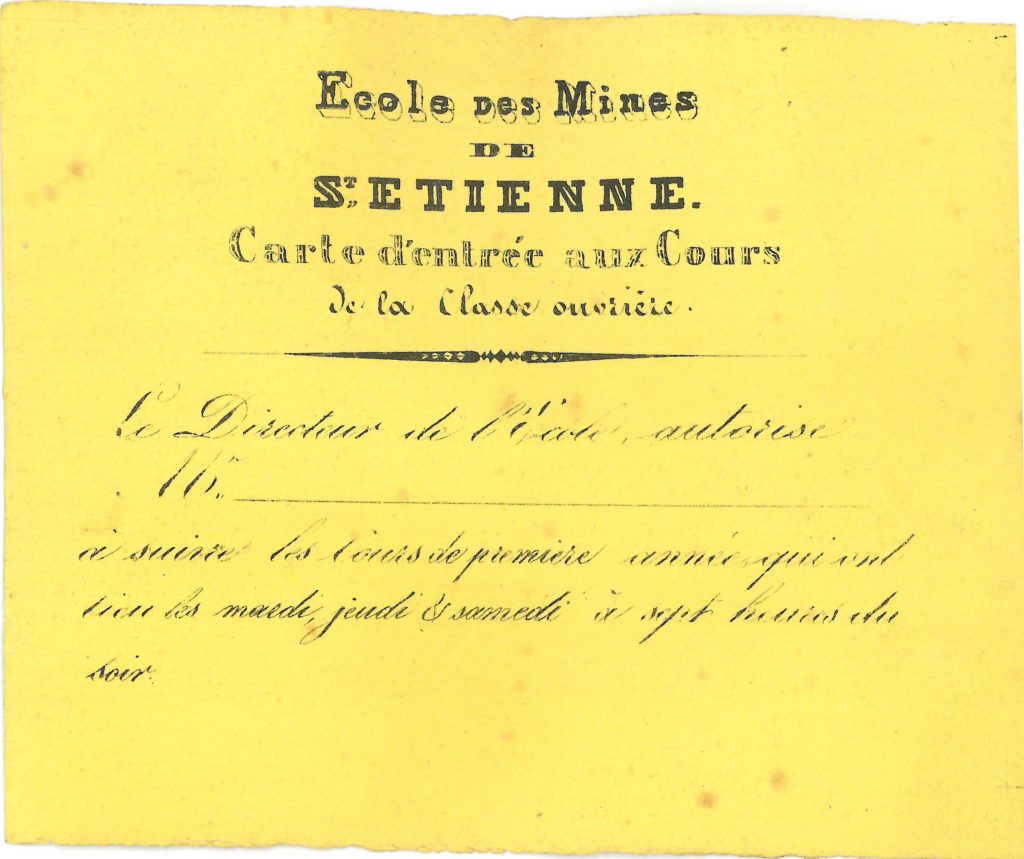 Ecole Des Mines
DE
ST. ETIENNE.
Carte d'entrée aux Cours
de la Classe ouvrière.
Le Directeur de l'École, autorise
Mr.
à suivre les Cours de premiere année, qui ont
lieu les mardi, jeudi & samedi à sept heures du
soir.